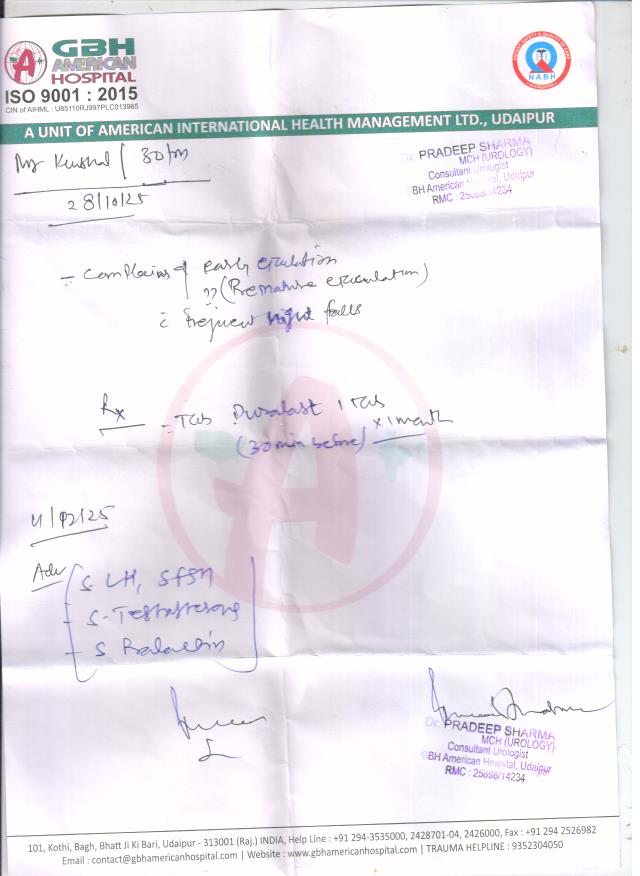 GBH
AMERICAN
HOSPITAL
ISO 9001 : 2015
CIN of AIHML : U85110RJ997PLC013965
NABH
A UNIT OF AMERICAN INTERNATIONAL HEALTH MANAGEMENT LTD., UDAIPUR
Mr Kushal / 30/m
28/10/25
Dr. PRADEEP SHARMA
MCH (UROLOGY)
Consultant Urologist
GBH American Hospital, Udaipur
RMC : 25698/14234
- Complains of early ejculation
?? (Premature ejaculation)
c frequent night falls
Rx
- Tab Duralast 1 tab x 1 month
(30 min before)
11/12/25
Adv
S LH, SFSH
- S-Testosterone
- S Prolactin
Dr. PRADEEP SHARMA
MCH (UROLOGY)
Consultant Urologist
GBH American Hospital, Udaipur
RMC : 25698/14234
101, Kothi, Bagh, Bhatt Ji Ki Bari, Udaipur - 313001 (Raj.) INDIA, Help Line : +91 294-3535000, 2428701-04, 2426000, Fax : +91 294 2526982
Email : contact@gbhamericanhospital.com | Website : www.gbhamericanhospital.com | TRAUMA HELPLINE : 9352304050